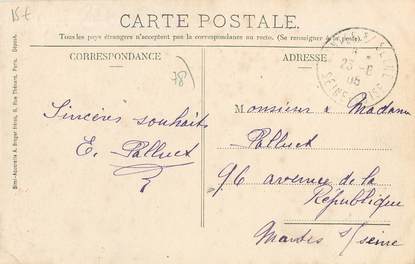 15€
CARTE POSTALE.
Tous les pays étrangers n'acceptent pas la correspondance au recto. (Se renseigner à la poste).
CORRESPONDANCE
ADRESSE
78
SEINE
Sincères souhaits
E. Palluet
Monsieur & Madame
Palluet
96 avenue de la
République
Mantes s/seine